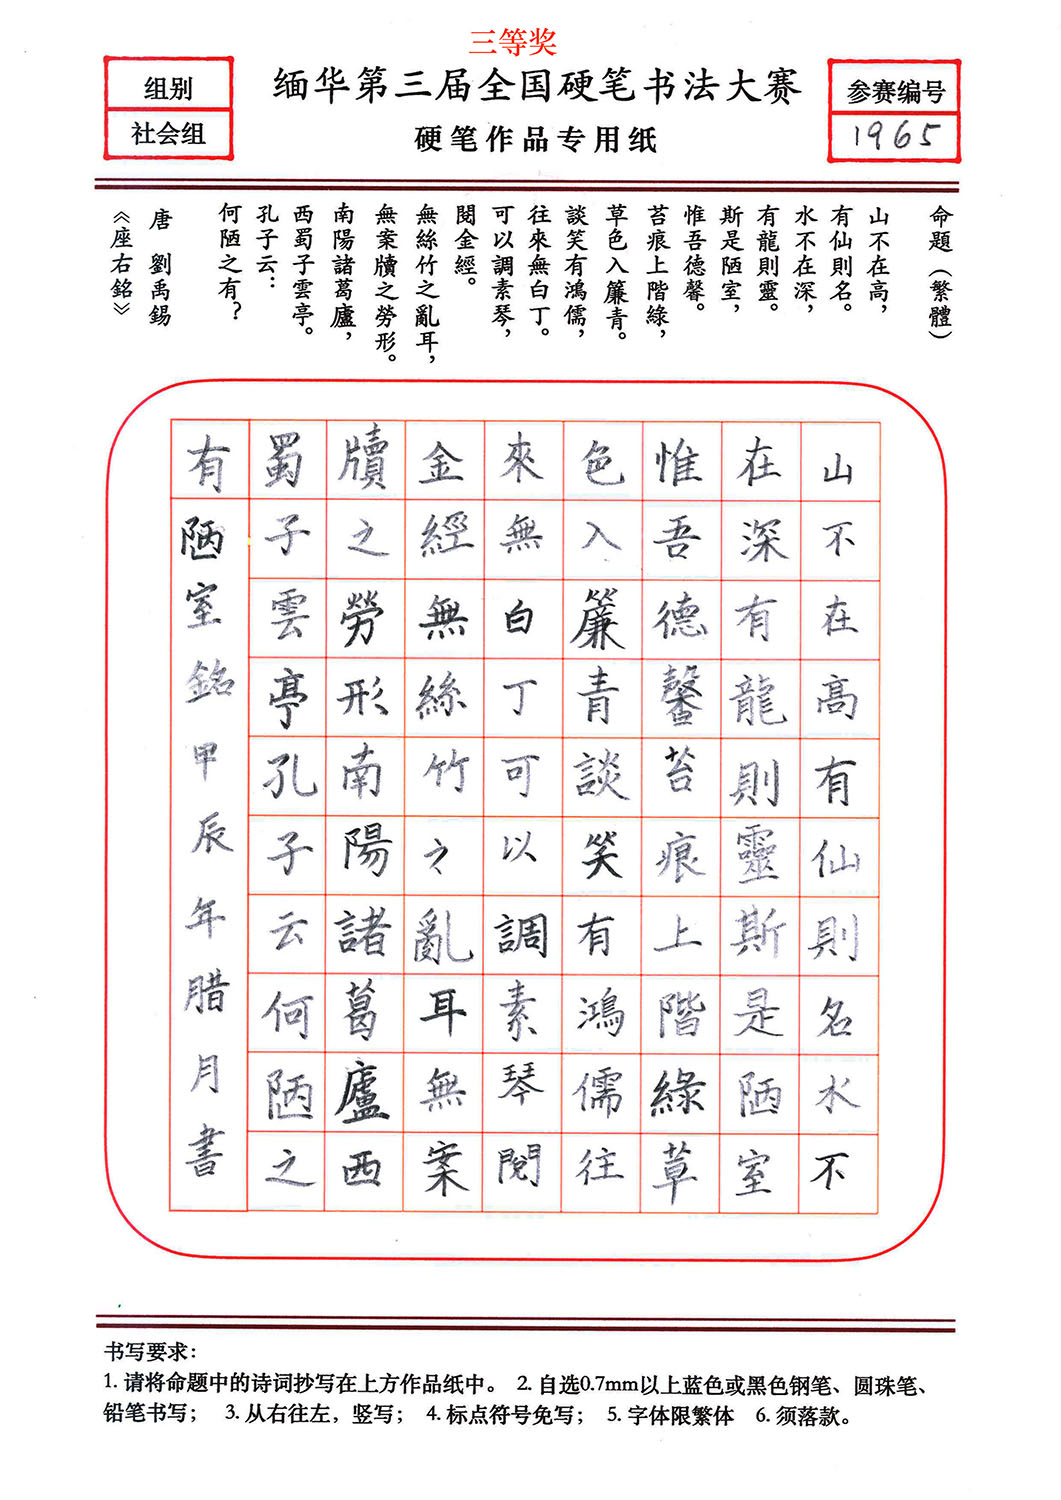 三等奖
缅华第三届全国硬笔书法大赛
硬笔作品专用纸
组别
社会组
参赛编号
1965
命題（繁體）
山不在高，
有仙則名。
水不在深，
有龍則靈。
斯是陋室，
惟吾德馨。
苔痕上階綠，
草色入簾青。
談笑有鴻儒，
往來無白丁。
可以調素琴，
閱金經。
無絲竹之亂耳，
無案牘之勞形。
南陽諸葛廬，
西蜀子雲亭。
孔子云：
何陋之有？
唐 劉禹錫
《座右銘》
山不在高有仙則名水不
在深有龍則靈斯是陋室
惟吾德馨苔痕上階綠草
色入簾青談笑有鴻儒往
來無白丁可以調素琴閱
金經無絲竹之亂耳無案
牘之勞形南陽諸葛廬西
蜀子雲亭孔子云何陋之
有陋室銘甲辰年腊月書
书写要求：
1. 请将命题中的诗词抄写在上方作品纸中。 2. 自选0.7mm以上蓝色或黑色钢笔、圆珠笔、
铅笔书写； 3. 从右往左，竖写； 4. 标点符号免写； 5. 字体限繁体 6. 须落款。